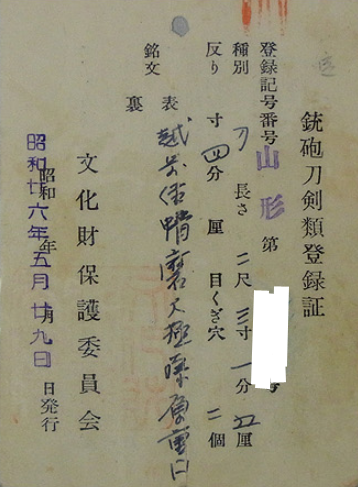 銃砲刀剣類登録証
登録記号番号 山形 第 号
種別 刀 長さ 二尺三寸一分五厘
反り 寸四分 厘 目くぎ穴 二個
銘文 表 越前住
裏
文化財保護委員会
昭和廿六年五月廿九日
昭和 年 月 日発行